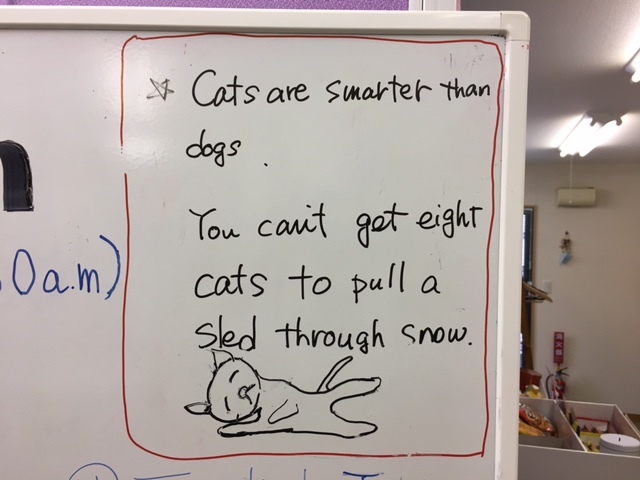 ☆ Cats are smarter than
dogs.
You can't get eight
cats to pull a
sled through snow.
0a.m)
消火器